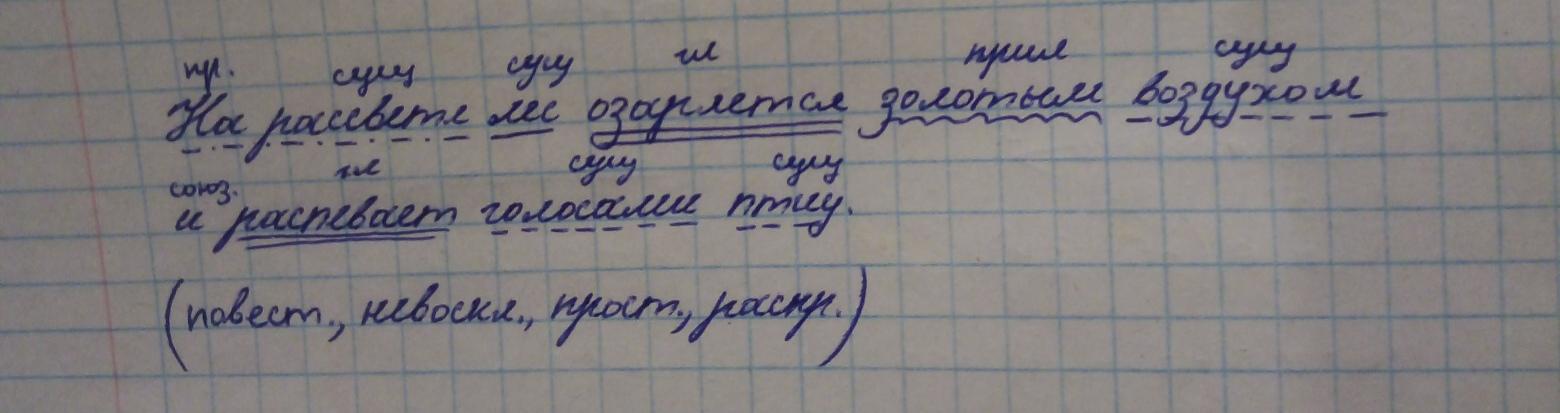 пр. сущ сущ гл прил сущ
На рассвете лес озаряется золотым воздухом
союз. гл сущ сущ
и распевает голосами птиц.
(повест., невоскл., прост., распр.)